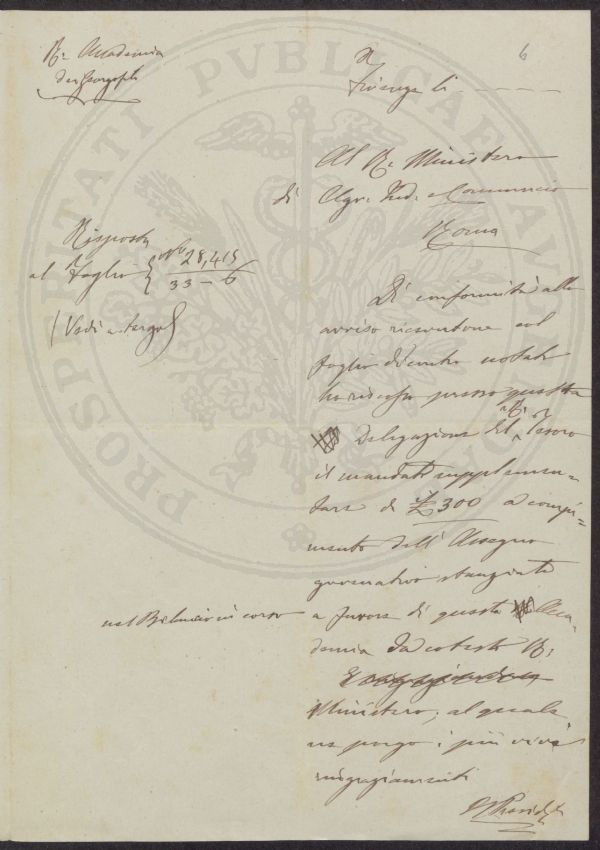 R. Accademia
dei Georgofili
6
Firenze li
Al R. Ministero
di Agr. Ind. e Commercio
Roma
Risposta
al Foglio No 28,415
33-6
(Vedi a tergo)
Di conformità alla
avviso ricevutone col
foglio di contro notato
ho riscosso presso questa
Delegazione del R. Tesoro
il mandato supplemen-
tare di £ 300 a compi-
mento dell'Assegno
governativo stanziato
nel Bilancio in corso
a favore di questa Acca-
demia da cotesto R.
Ministero, al quale
ne porgo i più vivi
ringraziamenti
Il Presidte
PROSPERITATI PVBLICAE